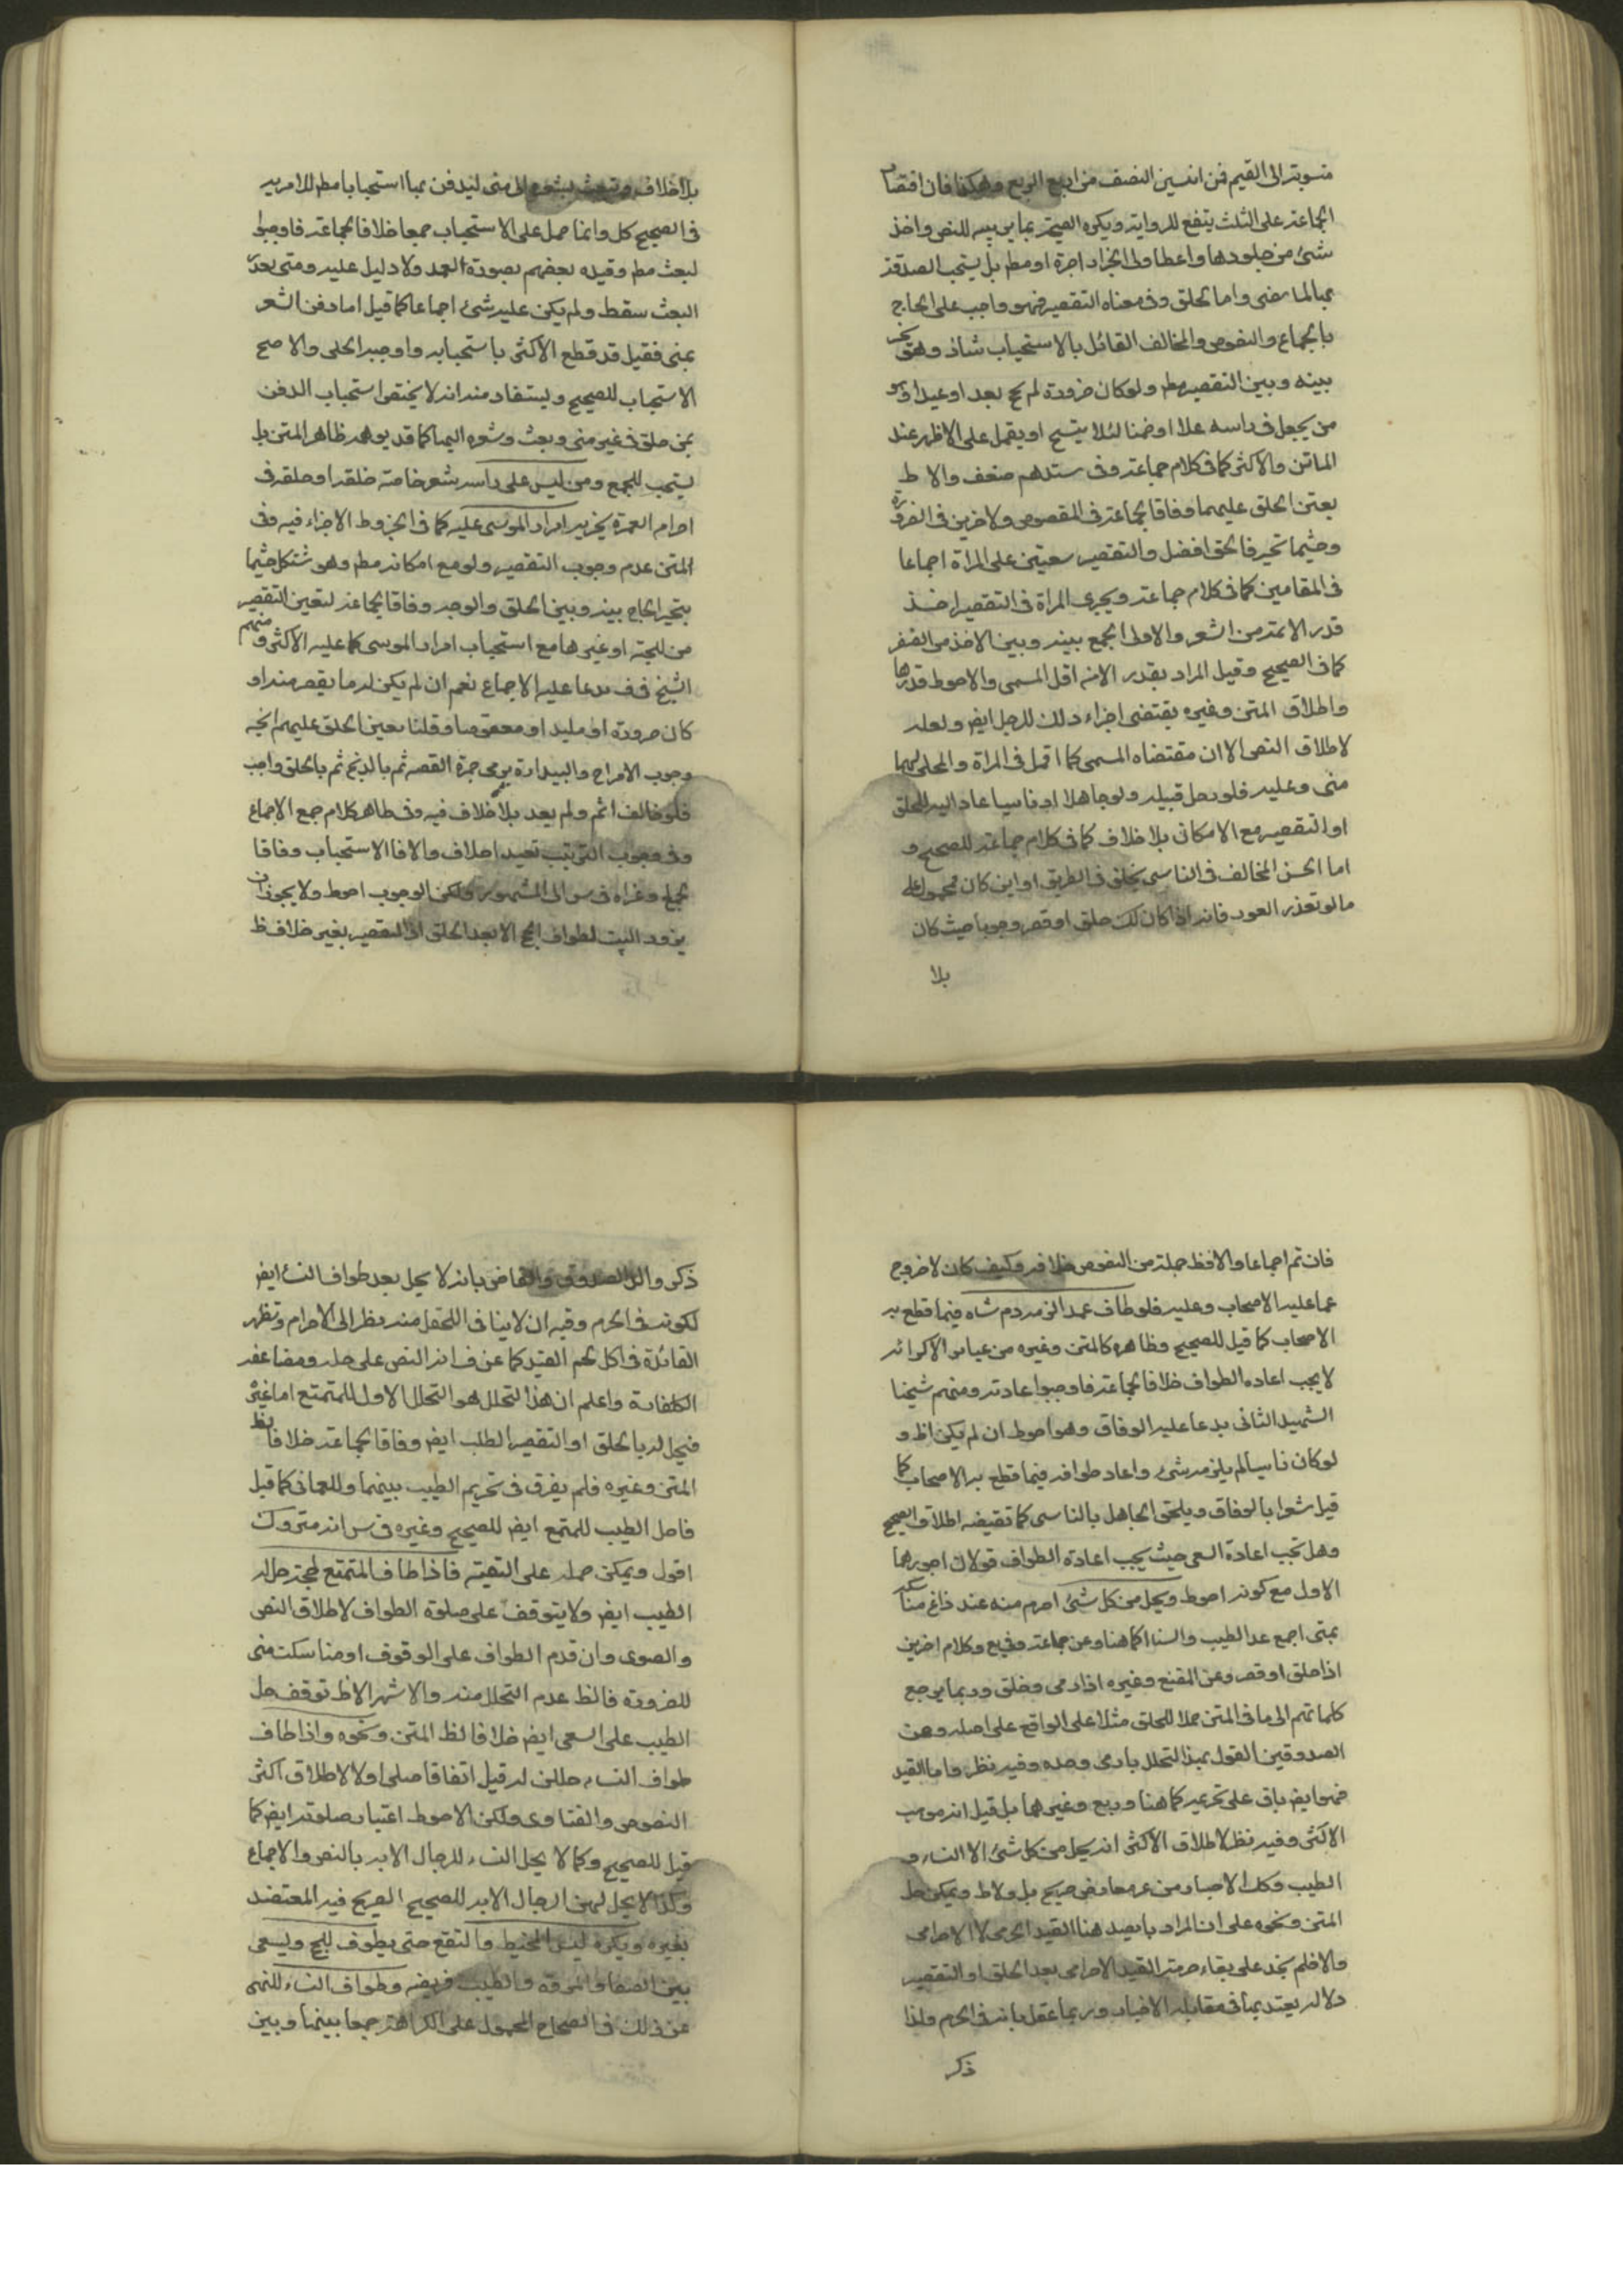 منسوبة الى القيم فمن اثنين النصف من اربع الربع وهكذا فان اقتصار
الجماعة على الثلث يتفع للرواية ويكره التضحية بما يربيه للنص واخذ
شئ من جلودها واعطاؤها الجزار اجرة او مطم بل يستحب الصدقة
بها لما مضى واما الحلق وفي معناه التقصير فهو واجب على الحاج
بالاجماع والنصوص والمخالف القائل بالاستحباب شاذ وهو مخير
بينه وبين التقصير مطم ولو كان ضرورة لم يحج بعد او مليدا وهو
من يجعل في راسه عسلا او صمغا لئلا يتسخ او يقمل على الاظهر عند
الماتن والاكثر كما في كلام جماعة وفي سندهم ضعف والاط
تعين الحلق عليهما وفاقا لجماعة في المقصوص ولاخرين في الضرورة
وحيثما تخير فالحلق افضل والتقصير متعين على المراة اجماعا
في المقامين كما في كلام جماعة ويجزى المراة في التقصير اخذ
قدر الانملة من الشعر والاولى الجمع بينه وبين الاخذ من الظفر
كما في الصحيح وقيل المراد بقدر الانملة اقل المسمى والاحوط قدرها
واطلاق المتن وغيره يقتضى اجزاء ذلك للرجل ايض ولعله
لاطلاق النص الا ان مقتضاه المسمى كما اقمل في المراة والمحل لهما
منى وعليه فلو رحل قبله ولو جاهلا او ناسيا عاد اليه للحلق
او التقصير مع الامكان بلا خلاف كما في كلام جماعة للصحيح و
اما الحسن المخالف في الناسى يحلق في الطريق او اين كان فمحمول على
ما لو تعذر العود فانه اذا كان كك حلق او قصر وجوبا حيث كان
بلا
بلا خلاف وبعث بشعره الى منى ليدفن بها استحبابا مطم للامر به
في الصحيح كل وانما حمل على الاستحباب جمعا خلافا لجماعة فاوجبوا
البعث مطم وقيده بعضهم بصورة العمد ولا دليل عليه ومتى تعذر
البعث سقط ولم يكن عليه شئ اجماعا كما قيل اما دفن الشعر
بمنى فقيل قد قطع الاكثر باستحبابه واوجبه الحلبى والاصح
الاستحباب للصحيح ويستفاد منه انه لا يختص استحباب الدفن
بمن حلق في غير منى وبعث وشعره اليها كما قد يوهمه ظاهر المتن بل
يستحب للجميع ومن ليس على راسه شعر خاصة خلقة او حلقه في
احرام العمرة يجزيه امرار الموسى عليه كما في الخبر وط الاجزاء فيه وفي
المتن عدم وجوب التقصير ولو مع امكانه مطم وهو مشكل حيثما
يتخير الحاج بينه وبين الحلق والوجه وفاقا لجماعة لتعين التقصير
من اللحية او غيرها مع استحباب امرار الموسى كما عليه الاكثر ومنهم
الشيخ في ف مدعيا عليه الاجماع نعم ان لم يكن له ما يقصر منه او
كان ضرورة او مليد او معقوصا وقلنا بتعين الحلق عليهم اتجه
وجوب الامرار والبداءة برمى جمرة القصه ثم بالذبح ثم بالحلق واجب
فلو خالف اثم ولم يعد بلا خلاف فيه وفي ظاهر كلام جمع الاجماع
وفي وجوب الترتيب تعبدا خلاف والا فالاستحباب وفاقا
لجماعة وعزاه في س الى المشهور ولكن الوجوب احوط ولا يجوز ان
يزور البيت لطواف الحج الا بعد الحلق او التقصير بغير خلاف ظ
فان تم اجماعا والا فظ جملة من النصوص خلافه وكيف كان لا خروج
عما عليه الاصحاب وعليه فلو طاف عمدا لزمه دم شاة فيما قطع به
الاصحاب كما قيل للصحيح وظاهره كالمتن وغيره من عبائر الاكثر انه
لا يجب اعادة الطواف خلافا لجماعة فاوجبوا اعادته ومنهم شيخنا
الشهيد الثانى مدعيا عليه الوفاق وهو احوط ان لم يكن اظ و
لو كان ناسيا لم يلزمه شئ واعاد طوافه فيما قطع به الاصحاب كما
قيل مشعرا بالوفاق ويلحق الجاهل بالناسى كما تقتضيه اطلاق الصحيح
وهل تجب اعادة السعى حيث يجب اعادة الطواف قولان اجودهما
الاول مع كونه احوط ويحل من كل شئ احرم منه عند فراغ مناسكه
بمنى اجمع عدا الطيب والنساء كما هنا وعن جماعة وفي يع وكلام اخرين
اذا حلق او قصر وعن المقنع وغيره اذا رمى وحلق وربما يرجع
كلماتهم الى ما في المتن حملا للحلق مثلا على الواقع على اصله وعن
الصدوقين القول بهذا التحلل بالرمى وحده وفيه نظر واما القيد
فهو ايض باق على تحريمه كما هنا ويع وغيرهما بل قيل انه مذهب
الاكثر وفيه نظر لاطلاق الاكثر انه يحل من كل شئ الا النساء و
الطيب وكك الاخبار من غير معارض صريح بل ولا ظ ويمكن حمل
المتن ونحوه على ان المراد بالصيد هنا القيد الحرمى لا الاحرامى
والا فلم نجد على بقاء حرمة القيد الاحرامى بعد الحلق او التقصير
دلالة يعتد بها في مقابلة الاخبار وربما عقل بانه في الحرم ولذا
ذكر
ذكر والد الصدوق والقاضى بانه لا يحل بعد طواف النساء ايض
لكونه في الحرم وفيه ان لا ينافى التحلل منه نظرا الى الاحرام وتظهر
الفائدة في اكل لحم القيد كما عن ف انه النص على حله ومضاعفة
الكفارة واعلم ان هذا التحلل هو التحلل الاول للمتمتع اما غيره
فيحل له بالحلق او التقصير الطيب ايض وفاقا لجماعة خلافا لظ
المتن وغيره فلم يفرق في تحريم الطيب بينهما وللعمانى كما قيل
فاحل الطيب للمتمتع ايض للصحيح وغيره في س انه متروك
اقول ويمكن حمله على التقية فاذا طاف المتمتع لحجته حل له
الطيب ايض ولا يتوقف على صلوة الطواف لاطلاق النص
والفتوى وان قدم الطواف على الوقوف او مناسك منى
للضرورة فالظ عدم التحلل منه والاشهر الاظ توقف حل
الطيب على السعى ايض خلافا لظ المتن ونحوه واذا طاف
طواف النساء حللن له قيل اتفاقا صلى او لا لاطلاق اكثر
النصوص والفتاوى ولكن الاحوط اعتبار صلوته ايض كما
قيل للصحيح وكما لا يحل النساء للرجال الا به بالنص والاجماع
وكذا لا يحل لهن الرجال الا به للصحيح الصريح فيه المعتضد
بغيره ويكره لبس المخيط والتقنع حتى يطوف للحج ويسعى
بين الصفا والمروة والطيب وطواف النساء للنهى
عن ذلك في الصحاح المحمول على الكراهة جمعا بينها وبين